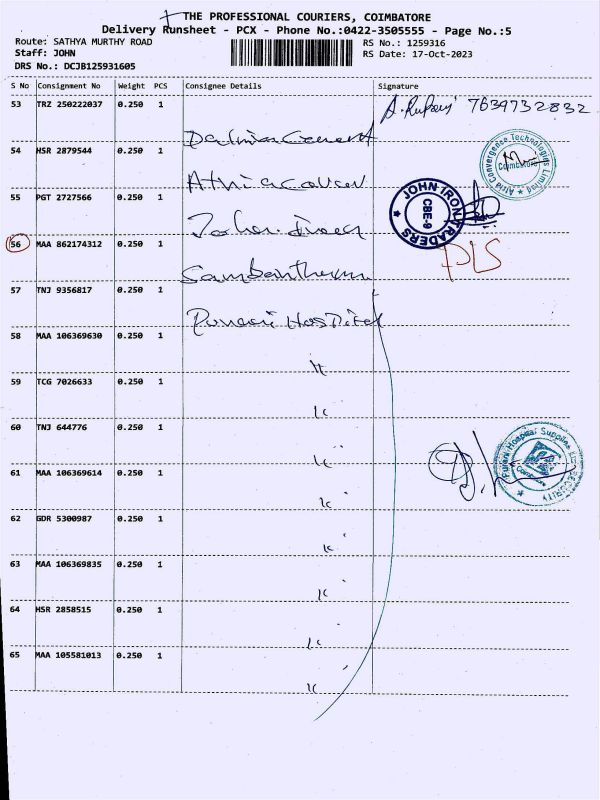 THE PROFESSIONAL COURIERS, COIMBATORE
Delivery Runsheet - PCX - Phone No.:0422-3505555 - Page No.:5
Route: SATHYA MURTHY ROAD RS No.: 1259316
Staff: JOHN RS Date: 17-Oct-2023
DRS No.: DCJB125931605
S No Consignment No Weight PCS Consignee Details Signature
53 TRZ 250222037 0.250 1 Dalmia Cement 7639732832
54 HSR 2879544 0.250 1 Atria Convergence Technologies Limited Coimbatore
55 PGT 2727566 0.250 1 JOHN IRON TRADERS CBE-9
56 MAA 862174312 0.250 1 Sambantham PLS
57 TNJ 9356817 0.250 1 Hospital
58 MAA 106369630 0.250 1
59 TCG 7026633 0.250 1
60 TNJ 644776 0.250 1 Purani Hospital Supplies SECURITY
61 MAA 106369614 0.250 1
62 GDR 5300987 0.250 1
63 MAA 106369835 0.250 1
64 HSR 2858515 0.250 1
65 MAA 105581013 0.250 1